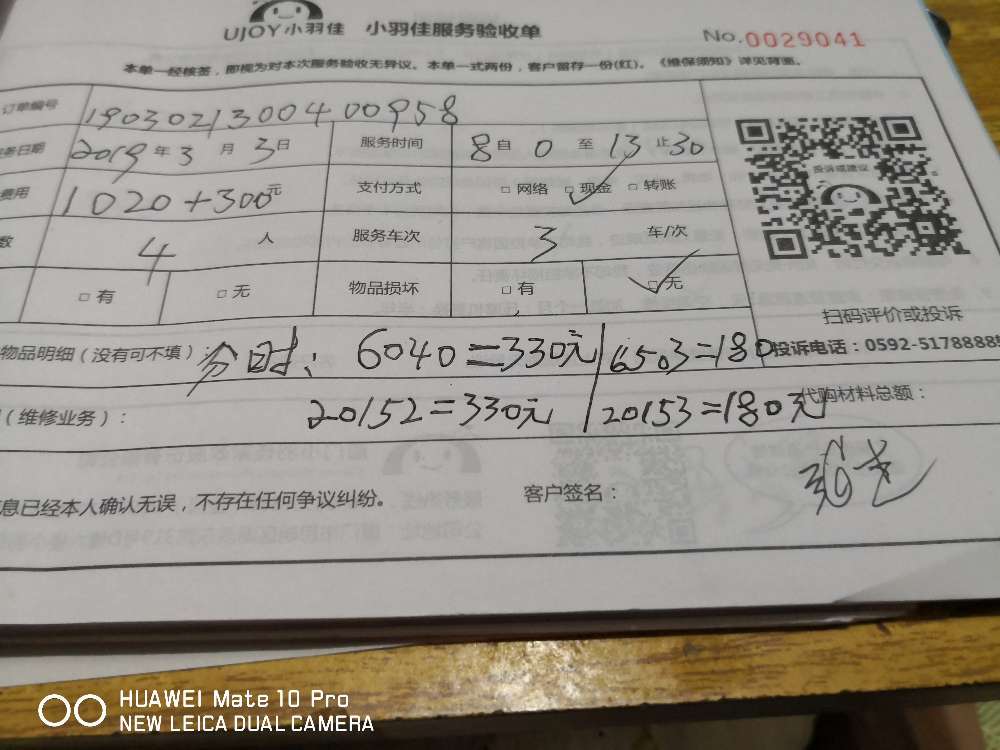 UJOY小羽佳 小羽佳服务验收单 No.0029041
本单一经核签，即视为对本次服务验收无异议。本单一式两份，客户留存一份(红)。《维保须知》详见背面。
订单编号 190302130040 0958
务日期 2019年3月3日 服务时间 8自0至13止30
费用 1020+300元 支付方式 □网络 □现金 □转账
数 4人 服务车次 3 车/次
□有 □无 物品损坏 □有 □无
投诉或建议
扫码评价或投诉
投诉电话：0592-5178888
物品明细（没有可不填）： 分时：6040=330元/6503=180
20152=330元/20153=180元
（维修业务）： 代购材料总额：
息已经本人确认无误，不存在任何争议纠纷。 客户签名：
HUAWEI Mate 10 Pro
NEW LEICA DUAL CAMERA